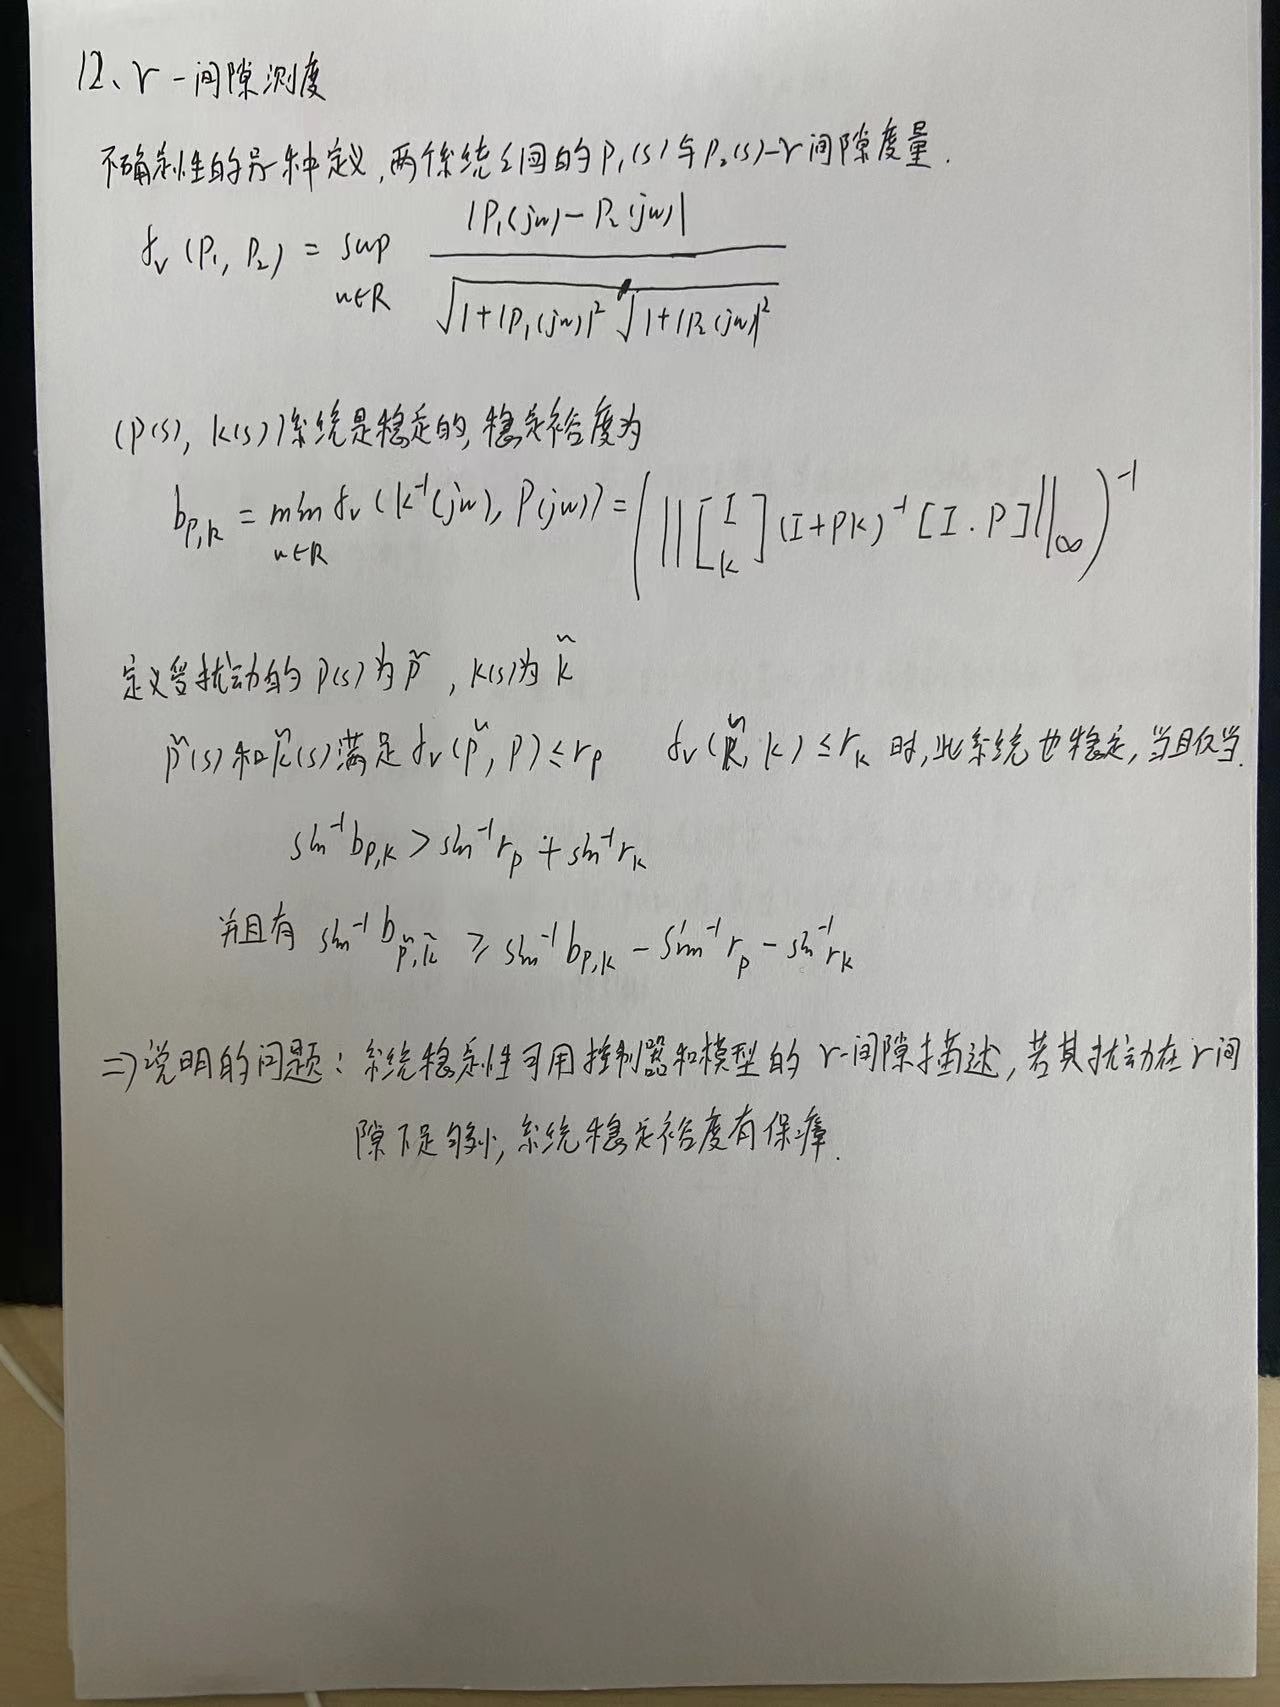 12、γ-间隙测度
不确定性的另一种定义,两个系统之间的P₁(s)与P₂(s)-γ间隙度量.
δᵥ(P₁, P₂) = sup_{ω∈R} |P₁(jω) - P₂(jω)| / √(1+|P₁(jω)|²) √(1+|P₂(jω)|²)
(P(s), K(s))系统是稳定的,稳定裕度为
b_{P,K} = min_{ω∈R} δᵥ(K⁻¹(jω), P(jω)) = ( || [I K] (I+PK)⁻¹ [I. P] ||∞ )⁻¹
定义受扰动的P(s)为P̃, K(s)为K̃
P̃(s)和K̃(s)满足δᵥ(P̃, P) ≤ r_P δᵥ(K̃, K) ≤ r_K 时,此系统也稳定,当且仅当.
sin⁻¹b_{P,K} > sin⁻¹r_P + sin⁻¹r_K
并且有 sin⁻¹b_{P̃,K̃} ≥ sin⁻¹b_{P,K} - sin⁻¹r_P - sin⁻¹r_K
⇒说明的问题: 系统稳定性可用控制器和模型的γ-间隙描述,若其扰动在γ间
隙下足够小,系统稳定裕度有保障.